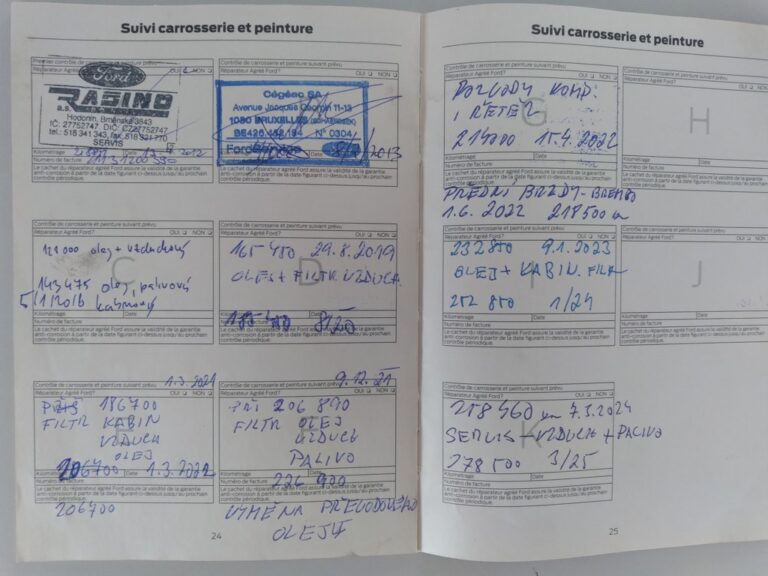 Suivi carrosserie et peinture
Premier contrôle de carrosserie et peinture prévu
Réparateur Agréé Ford? OUI NON
Ford
RASINO
Hodonín, Brněnská 3843
IČ: 27752747, DIČ: CZ27752747
tel.: 518 341 343, fax: 518 321 770
SERVIS
Kilométrage Date
Numéro de facture
Le cachet du réparateur agréé Ford assure la validité de la garantie
anti-corrosion à partir de la date figurant ci-dessus jusqu'au prochain
contrôle périodique.
Contrôle de carrosserie et peinture suivant prévu
Réparateur Agréé Ford? OUI NON
Cégéac SA
Avenue Jacques Georgin 11-13
1030 BRUXELLES
N° 0304
Ford
Date 2013
Le cachet du réparateur agréé Ford assure la validité de la garantie
anti-corrosion à partir de la date figurant ci-dessus jusqu'au prochain
contrôle périodique.
Contrôle de carrosserie et peinture suivant prévu
Réparateur Agréé Ford? OUI NON
C
olej + vzduchový
143475 olej, palivový
kabinový
Kilométrage Date
Numéro de facture
Le cachet du réparateur agréé Ford assure la validité de la garantie
anti-corrosion à partir de la date figurant ci-dessus jusqu'au prochain
contrôle périodique.
Contrôle de carrosserie et peinture suivant prévu
Réparateur Agréé Ford? OUI NON
165 450 29.8.2019
D
OLEJ + FILTR VZDUCH.
Kilométrage Date
Numéro de facture
Le cachet du réparateur agréé Ford assure la validité de la garantie
anti-corrosion à partir de la date figurant ci-dessus jusqu'au prochain
contrôle périodique.
1.3.2021
Contrôle de carrosserie et peinture suivant prévu
Réparateur Agréé Ford? OUI NON
PŘI 186700
FILTR KABIN
E
VZDUCH
OLEJ
206700 1.3.2022
Kilométrage Date
Numéro de facture
Le cachet du réparateur agréé Ford assure la validité de la garantie
anti-corrosion à partir de la date figurant ci-dessus jusqu'au prochain
contrôle périodique.
206700
9.12.21
Contrôle de carrosserie et peinture suivant prévu
Réparateur Agréé Ford? OUI NON
PŘI 206 800
FILTR OLEJ
F
VZDUCH
PALIVO
Kilométrage Date
226 900
Numéro de facture
Le cachet du réparateur agréé Ford assure la validité de la garantie
anti-corrosion à partir de la date figurant ci-dessus jusqu'au prochain
contrôle périodique.
VÝMĚNA PŘEVODOVÉHO
OLEJE
24
Suivi carrosserie et peinture
Contrôle de carrosserie et peinture suivant prévu
Réparateur Agréé Ford? OUI NON
ROZVODY KOMP.
G
I ŘETĚZ
214000 15.4.2022
Kilométrage Date
Numéro de facture
Le cachet du réparateur agréé Ford assure la validité de la garantie
anti-corrosion à partir de la date figurant ci-dessus jusqu'au prochain
contrôle périodique.
PŘEDNÍ BRZDY - BREMBO
1.6.2022 218500 km
Contrôle de carrosserie et peinture suivant prévu
Réparateur Agréé Ford? OUI NON
H
Kilométrage Date
Numéro de facture
Le cachet du réparateur agréé Ford assure la validité de la garantie
anti-corrosion à partir de la date figurant ci-dessus jusqu'au prochain
contrôle périodique.
Réparateur Agréé Ford? OUI NON
232 850 9.1.2023
I
OLEJ + KABIN. FILTR
252 850 1/24
Kilométrage Date
Numéro de facture
Le cachet du réparateur agréé Ford assure la validité de la garantie
anti-corrosion à partir de la date figurant ci-dessus jusqu'au prochain
contrôle périodique.
Contrôle de carrosserie et peinture suivant prévu
Réparateur Agréé Ford? OUI NON
J
Kilométrage Date
Numéro de facture
Le cachet du réparateur agréé Ford assure la validité de la garantie
anti-corrosion à partir de la date figurant ci-dessus jusqu'au prochain
contrôle périodique.
Contrôle de carrosserie et peinture suivant prévu
Réparateur Agréé Ford? OUI NON
258 560 km 7.3.2024
SERVIS - VZDUCH + PALIVO
K
278 500 3/25
Kilométrage Date
Numéro de facture
Le cachet du réparateur agréé Ford assure la validité de la garantie
anti-corrosion à partir de la date figurant ci-dessus jusqu'au prochain
contrôle périodique.
25